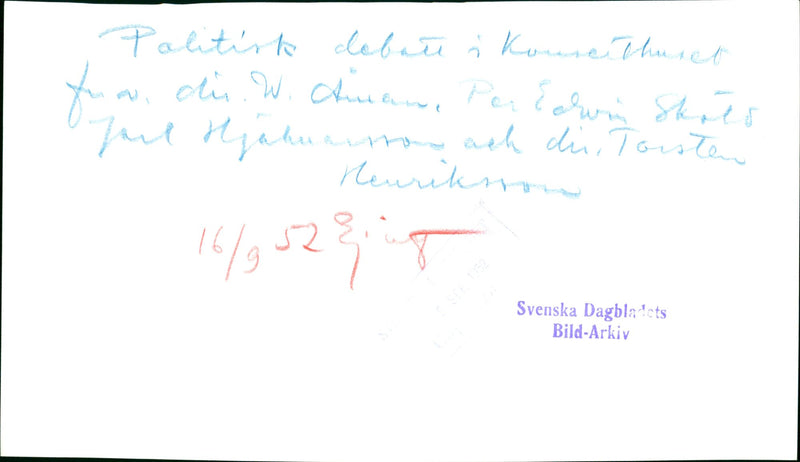 Politisk debatt i Konserthuset
fr. v. dir. W. Åman, Per Edwin Sköld
Jarl Hjalmarsson och dir. Torsten
Henriksson
16/9 52
Svenska Dagbladets
Bild-Arkiv